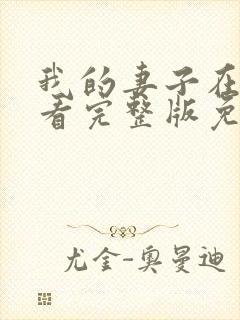 我的妻子在
看完整版免
尤金-奥曼迪